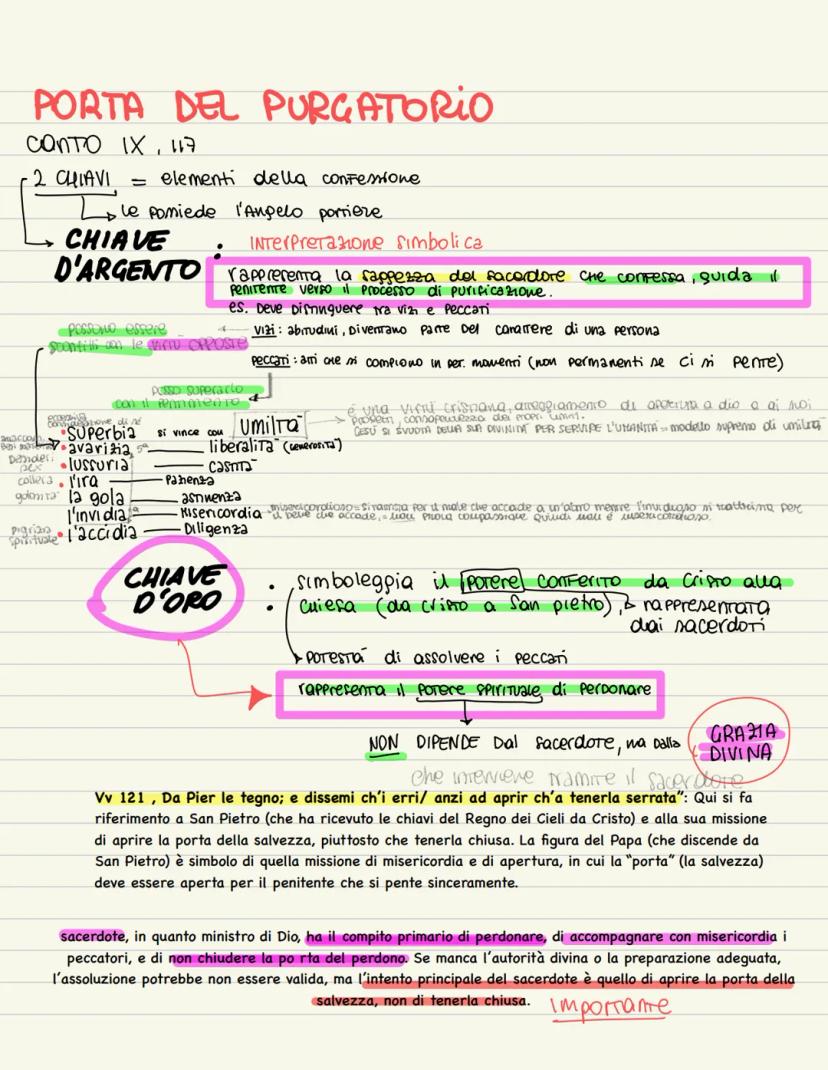 PORTA DEL PURGATORIO
CANTO IX, 117
2 CHIAVI = elementi della confessione
le possiede l'Angelo portiere
CHIAVE D'ARGENTO : INTERPRETAZIONE SIMBOLICA
rappresenta la saggezza del sacerdote che confessa, guida il
penitente verso il processo di purificazione.
es. Deve distinguere tra vizi e peccati
possono essere
sconfitti con le virtù opposte
vizi: abitudini, diventano parte del carattere di una persona
peccati: atti che si compiono in per. momenti (non permanenti se ci si pente)
posso superarlo
con il pentimento
è una virtù cristiana, atteggiamento di apertura a dio e ai
GESÙ SI SVUOTA DELLA SUA DIVINITÀ PER SERVIRE L'UMANITÀ = modello supremo di umiltà
eccessiva
considerazione di sé
superbia si vince con UMILTÀ
avarizia liberalità (generosità)
lussuria castità
collera l'ira pazienza
golosità la gola astinenza
l'invidia misericordia misericordioso = si rattrista per il male che accade a un altro mentre l'invidioso si rattrista per
il bene che accade, = non prova compassione quindi non è misericordioso.
pigrizia
spirituale l'accidia Diligenza
CHIAVE D'ORO : simboleggia il potere conferito da Cristo alla
chiesa (da cristo a San pietro), rappresentata
dai sacerdoti
potestà di assolvere i peccati
rappresenta il potere spirituale di perdonare
NON DIPENDE Dal sacerdote, ma dalla GRAZIA DIVINA
che interviene tramite il sacerdote
Vv 121 , Da Pier le tegno; e dissemi ch'i erri/ anzi ad aprir ch'a tenerla serrata": Qui si fa
riferimento a San Pietro (che ha ricevuto le chiavi del Regno dei Cieli da Cristo) e alla sua missione
di aprire la porta della salvezza, piuttosto che tenerla chiusa. La figura del Papa (che discende da
San Pietro) è simbolo di quella missione di misericordia e di apertura, in cui la "porta" (la salvezza)
deve essere aperta per il penitente che si pente sinceramente.
sacerdote, in quanto ministro di Dio, ha il compito primario di perdonare, di accompagnare con misericordia i
peccatori, e di non chiudere la po rta del perdono. Se manca l'autorità divina o la preparazione adeguata,
l'assoluzione potrebbe non essere valida, ma l'intento principale del sacerdote è quello di aprire la porta della
salvezza, non di tenerla chiusa. importante